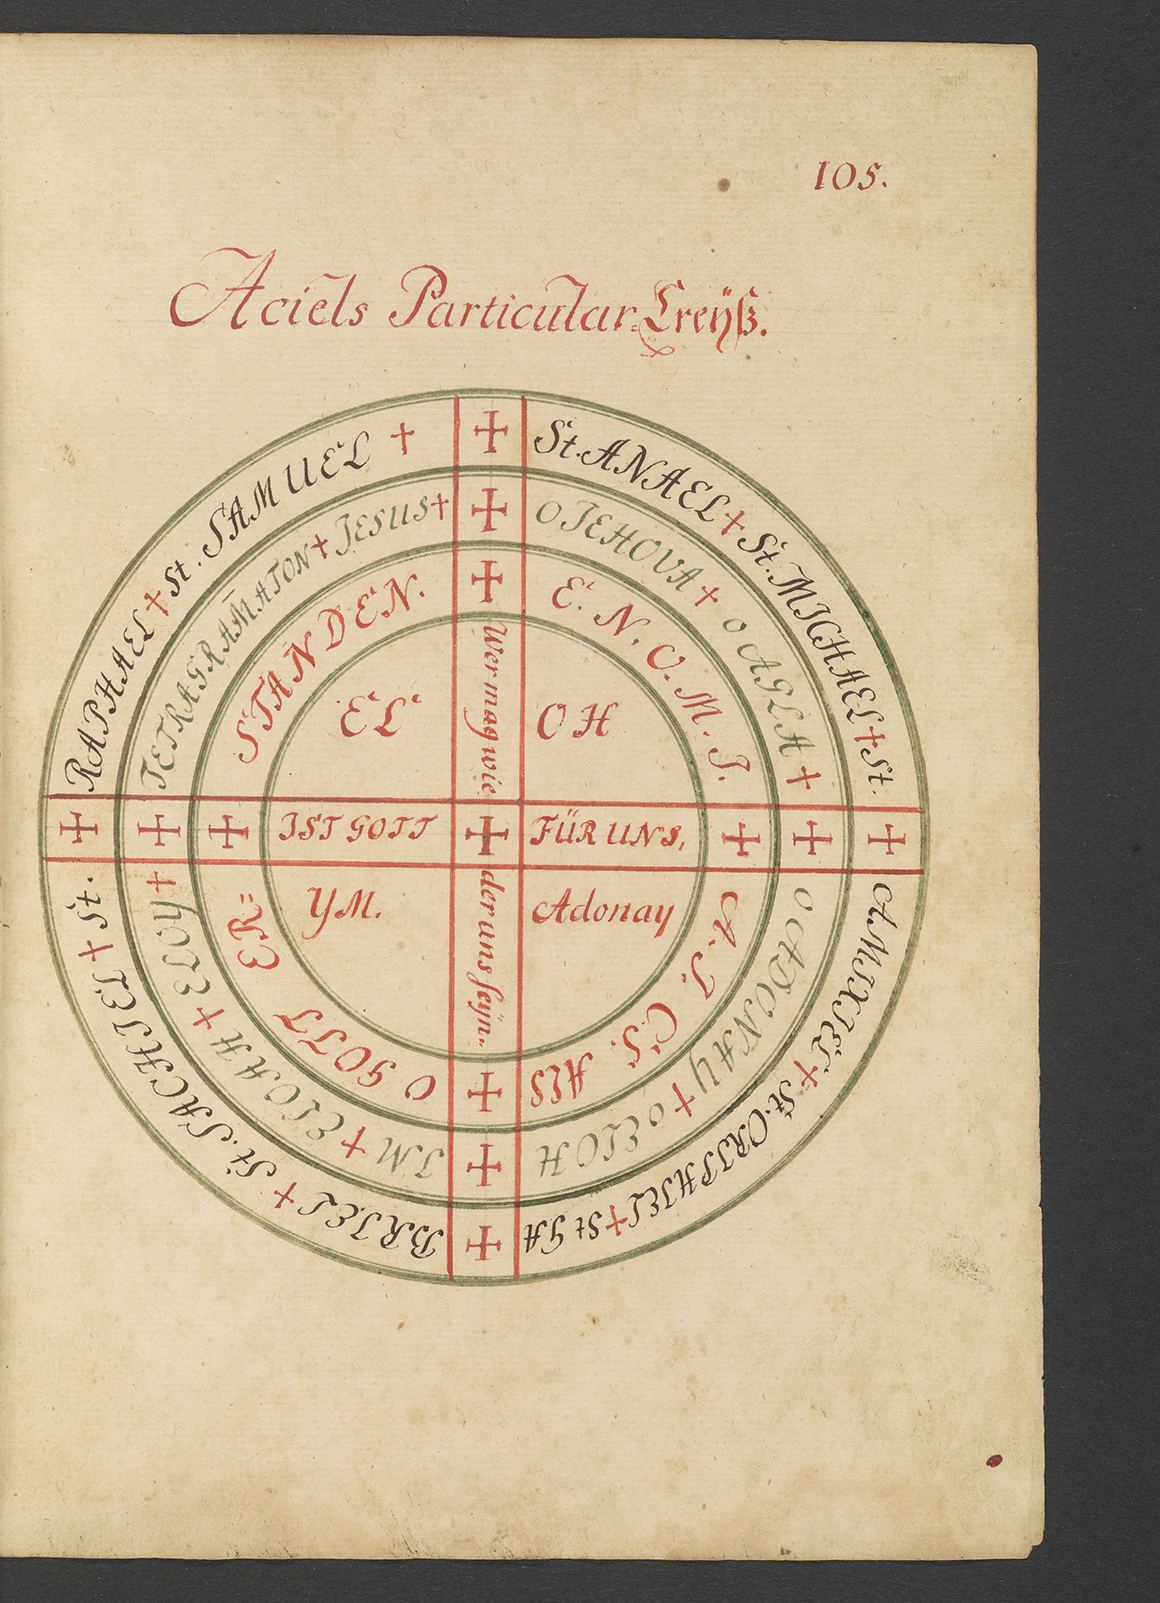 105.
Aciels Particular-Creÿß.
✝ St. ANAEL ✝ St. MICHAEL ✝ St. ✝ AMIXIEL ✝ St. ORIPHIEL ✝ St GA ✝ BRIEL ✝ St. SACHIEL ✝ St. ✝ RAPHAEL ✝ St. SAMUEL ✝
✝ O JEHOVA ✝ O AGLA ✝ ✝ O ADONAY ✝ O ELOH ✝ IM ✝ ELOAH ✝ ELOY ✝ ✝ TETRAGRAM̄ATON ✝ JESUS ✝
✝ E. N. O. M. I. ✝ A. I. C. S. ALS ✝ O GOTT ER= ✝ STANDEN.
EL OH
YM. Adonay
IST GOTT ✝ FÜR UNS,
Wer mag wie ✝ der uns seÿn.